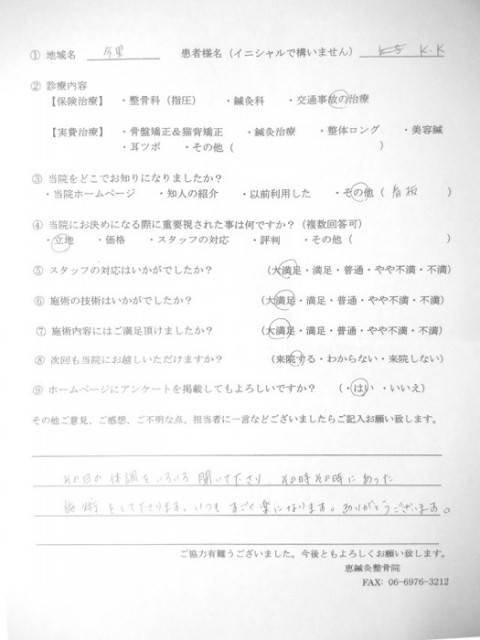 ① 地域名 今里 患者様名（イニシャルで構いません） K.K
② 診療内容
【保険治療】 ・整骨科（指圧） ・鍼灸科 ・交通事故の治療
【実費治療】 ・骨盤矯正＆猫背矯正 ・鍼灸治療 ・整体ロング ・美容鍼
・耳ツボ ・その他（ ）
③ 当院をどこでお知りになりましたか？
・当院ホームページ ・知人の紹介 ・以前利用した ・その他（ 看板 ）
④ 当院にお決めになる際に重要視された事は何ですか？（複数回答可）
・立地 ・価格 ・スタッフの対応 ・評判 ・その他（ ）
⑤ スタッフの対応はいかがでしたか？ （大満足・満足・普通・やや不満・不満）
⑥ 施術の技術はいかがでしたか？ （大満足・満足・普通・やや不満・不満）
⑦ 施術内容にはご満足頂けましたか？ （大満足・満足・普通・やや不満・不満）
⑧ 次回も当院にお越しいただけますか？ （来院する・わからない・来院しない）
⑨ ホームページにアンケートを掲載してもよろしいですか？ （・はい ・いいえ）
その他ご意見、ご感想、ご不明な点、担当者に一言などございましたらご記入お願い致します。
その日の体調をいろいろ聞いて下さり、その時その時にあった
施術をして下さります。いつもすごく楽になります。ありがとうございます。
ご協力有難うございました。今後ともよろしくお願い致します。
恵鍼灸整骨院
FAX: 06-6976-3212